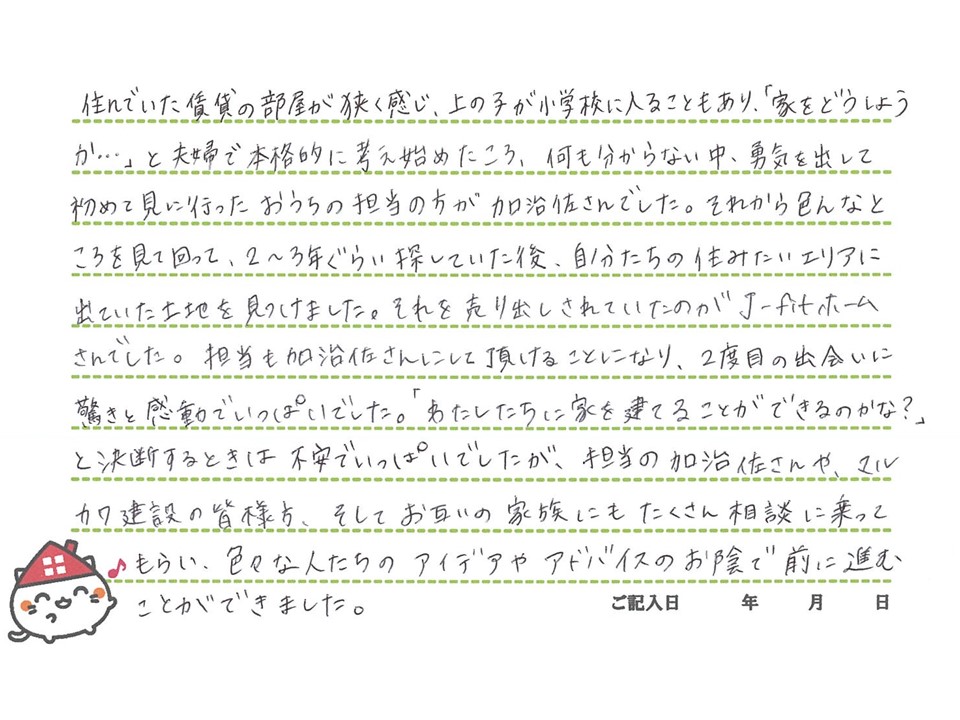 住んでいた賃貸の部屋が狭く感じ、上の子が小学校に入ることもあり、「家をどうしよう
か…」と夫婦で本格的に考え始めたころ、何も分からない中、勇気を出して
初めて見に行ったおうちの担当の方が加治佐さんでした。それから色んなと
ころを見て回って、2～3年ぐらい探していた後、自分たちの住みたいエリアに
出ていた土地を見つけました。それを売り出しされていたのがJ-fitホーム
さんでした。担当も加治佐さんにして頂けることになり、2度目の出会いに
驚きと感動でいっぱいでした。「わたしたちに家を建てることができるのかな?」
と決断するときは不安でいっぱいでしたが、担当の加治佐さんや、マル
カワ建設の皆様方、そしてお互いの家族にもたくさん相談に乗って
もらい、色々な人たちのアイデアやアドバイスのお陰で前に進む
ことができました。
ご記入日 年 月 日